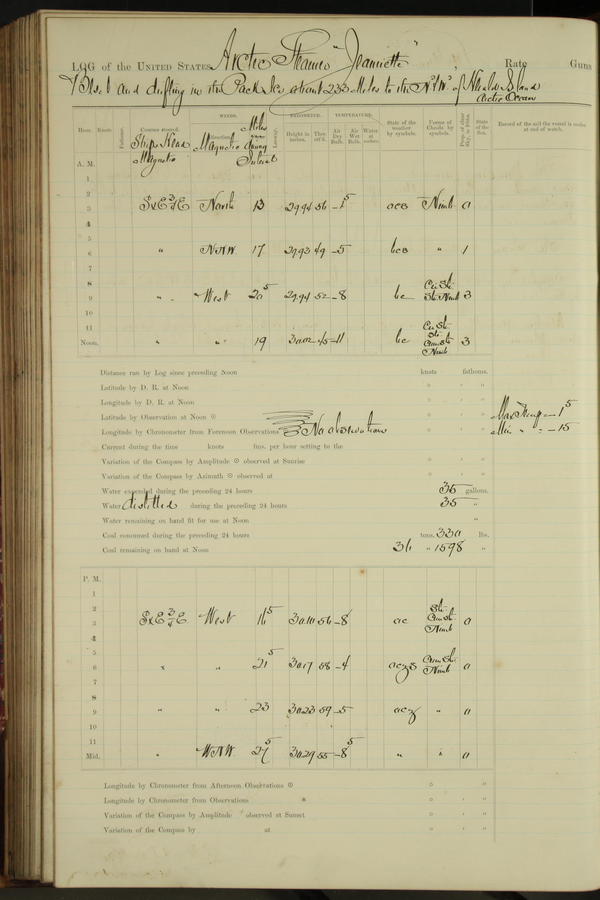 LOG of the United States Arctic Steamer "Jeannette" Rate Guns
Beset and drifting in the Pack Ice about 233 Miles to the N.W. of Herald Island
Arctic Ocean
WINDS. BAROMETER. TEMPERATURE.
Hour. Knots. Fathoms. Courses steered. Ship's Head Magnetic Direction Magnetic Miles during Interval Leeway. Height in inches. Ther. att'd. Air Dry Bulb. Air Wet Bulb. Water at surface. State of the weather by symbols. Forms of Clouds by symbols. State of the Sea. Record of the sail the vessel is under at end of watch.
A. M.
1
2
3 SxE¾E North 13 29.94 56 -1⁵ ocs Nimb 0
4
5
6 " NNW. 17 29.93 49 -5 bcs " 1
7
8
9 " " West 20⁵ 29.94 52 -8 bc Cir Str Str Nimb 3
10
11
Noon. " " 19 30.02 45 -11 bc Cir St. Str Cum St. Nimb 3
Distance run by Log since preceding Noon knots fathoms.
Latitude by D. R. at Noon ° ' "
Longitude by D. R. at Noon ° ' "
Latitude by Observation at Noon ⊙ ° ' "
Longitude by Chronometer from Forenoon Observations No observation ° ' "
Max Temp = -1⁵
Min " = -15
Current during the time knots fms. per hour setting to the
Variation of the Compass by Amplitude ⊙ observed at Sunrise ° ' "
Variation of the Compass by Azimuth ⊙ observed at ° ' "
Water expended during the preceding 24 hours 35 gallons.
Water distilled during the preceding 24 hours 35 "
Water remaining on hand fit for use at Noon "
Coal consumed during the preceding 24 hours tons. 330 lbs.
Coal remaining on hand at Noon 36 " 1598 "
P. M.
1
2
3 SxE¾E West 16⁵ 30.10 56 -8 oc Str Cum St. Nimb 0
4
5
6 " " 21⁵ 30.17 58 -4 oczs Cum Str Nimb 0
7
8
9 " " 23 30.23 59 -5 ocz " 0
10
11
Mid. " WNW. 27⁵ 30.29 55 -8⁵ " " 0
Longitude by Chronometer from Afternoon Observations ⊙ ° ' "
Longitude by Chronometer from Observations * ° ' "
Variation of the Compass by Amplitude observed at Sunset ° ' "
Variation of the Compass by at ° ' "